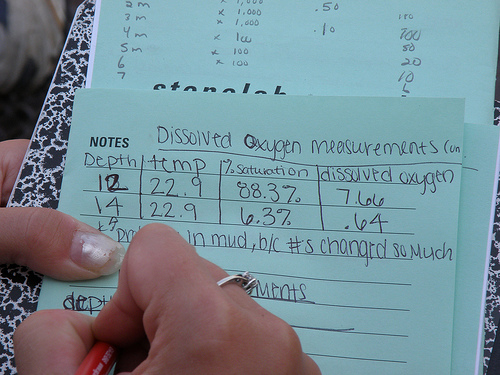 3 m x 1,000 .50
4 m x 100 .10 700
5 m x 100 50
6 x 100 20
7 10
stonelab
NOTES Dissolved Oxygen measurements (on
Depth temp % saturation dissolved oxygen
12 22.9 88.3% 7.66
14 22.9 6.3% .64
in mud, b/c #s changed so much
ments
dept